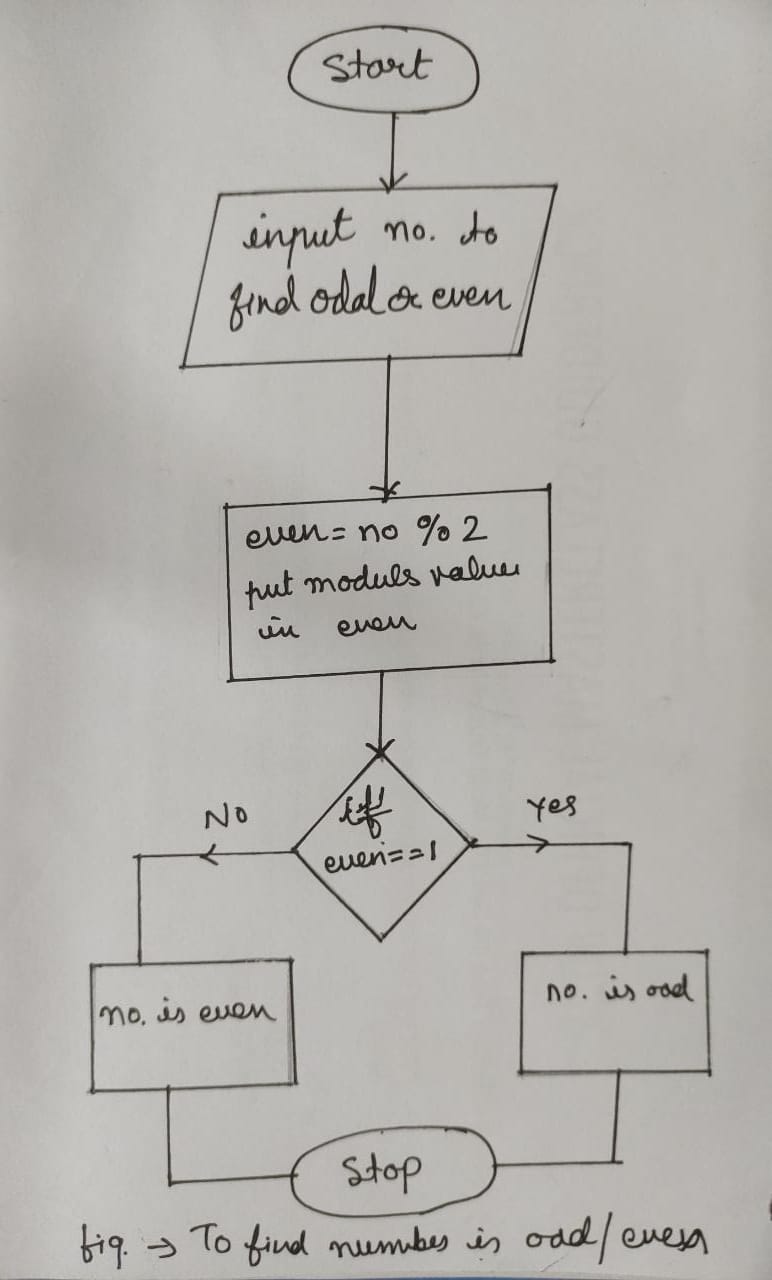 Start
input no. to
find odd or even
even = no % 2
put moduls value
in even
if
even==1
No
Yes
no. is even
no. is odd
Stop
fig. → To find number is odd/even